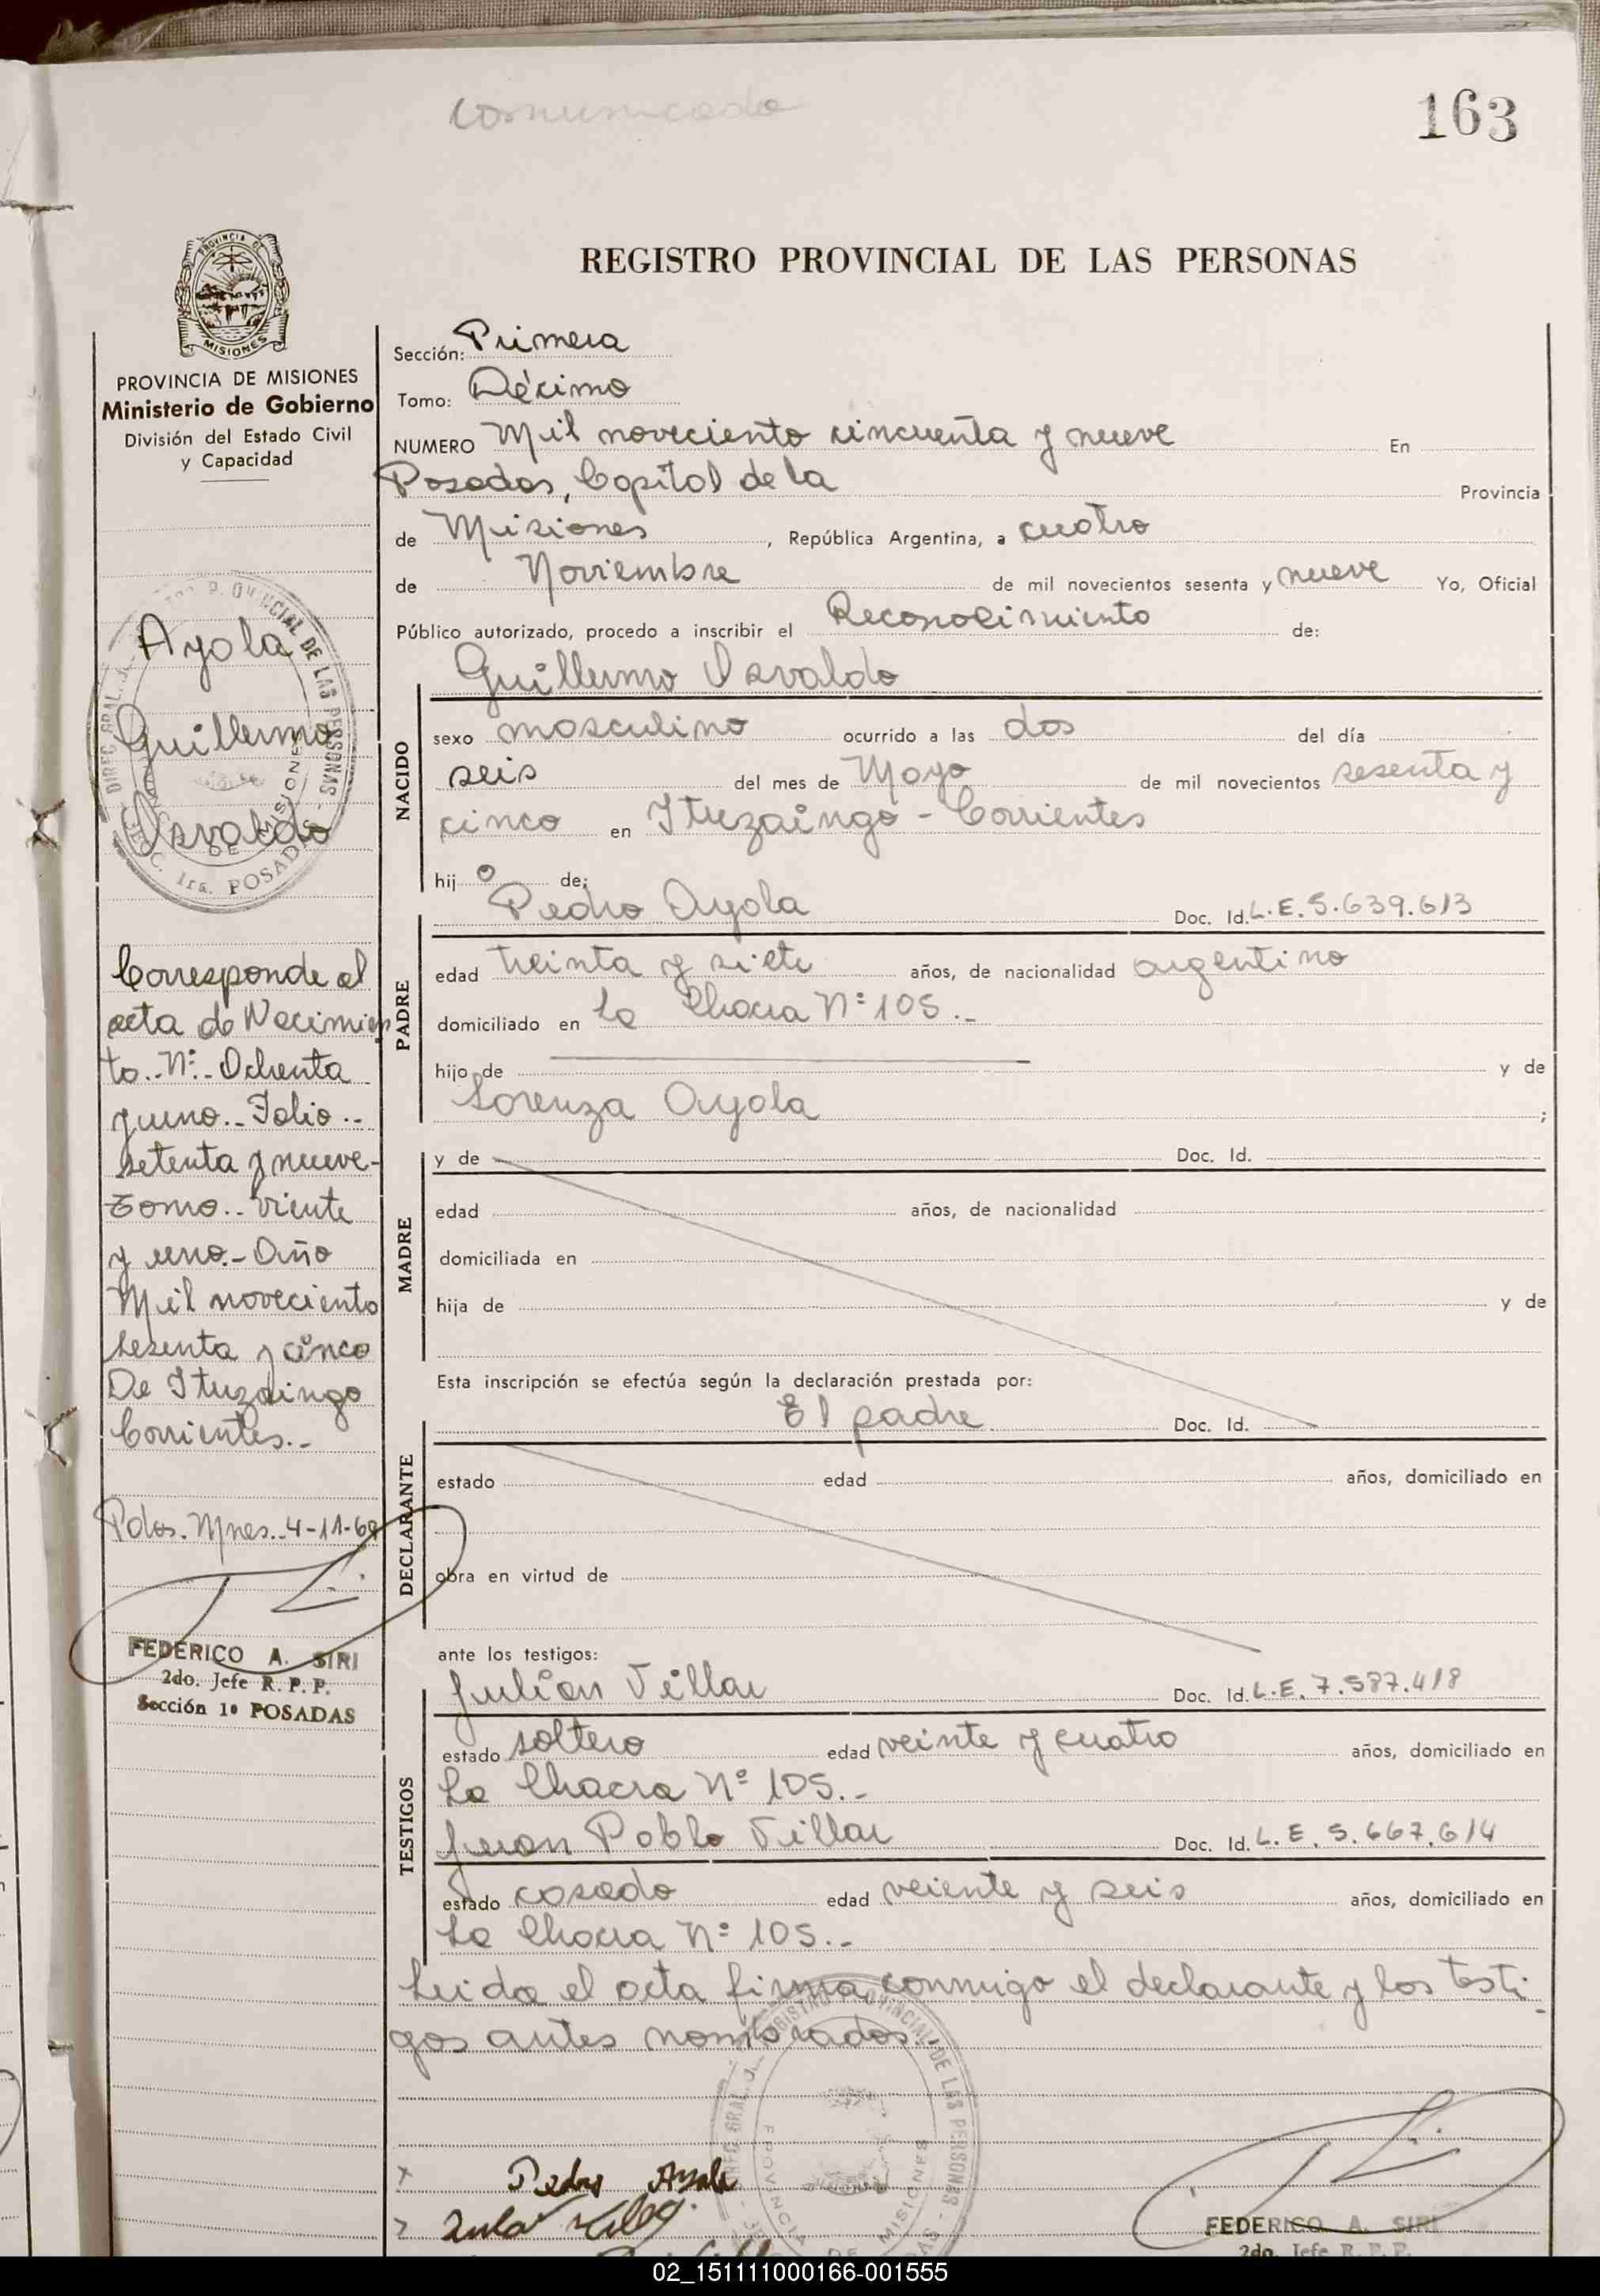 comunicado
163
REGISTRO PROVINCIAL DE LAS PERSONAS
PROVINCIA DE MISIONES
PROVINCIA DE MISIONES
Ministerio de Gobierno
División del Estado Civil
y Capacidad
Ayala
Guillermo
Osvaldo
Corresponde al
acta de Nacimien
to.-Nº.- Ochenta
y uno.- Folio.-
setenta y nueve-
Tomo.- Viente
y uno.- Año
Mil noveciento
sesenta y cinco
De Ituzaingo
Corrientes.-
Pdas. Mnes. 4-11-69
FEDERICO A. SIRI
2do. Jefe R. P. P.
Sección 1º POSADAS
Sección: Primera
Tomo: Décimo
NUMERO Mil noveciento cincuenta y nueve En
Posadas, Capital de la Provincia
de Misiones, República Argentina, a cuatro
de Noviembre de mil novecientos sesenta y nueve Yo, Oficial
Público autorizado, procedo a inscribir el Reconocimiento de:
Guillermo Osvaldo
NACIDO
sexo masculino ocurrido a las dos del día
seis del mes de Mayo de mil novecientos sesenta y
cinco en Ituzaingó - Corrientes
hij o de:
Pedro Ayala Doc. Id. L.E. 5.639.613
PADRE
edad treinta y siete años, de nacionalidad argentino
domiciliado en La Chacra Nº 105.-
hijo de y de
Lorenza Ayala ;
MADRE
y de Doc. Id.
edad años, de nacionalidad
domiciliada en
hija de y de
Esta inscripción se efectúa según la declaración prestada por:
El padre Doc. Id.
DECLARANTE
estado edad años, domiciliado en
obra en virtud de
ante los testigos:
Julián Villar Doc. Id. L.E. 7.587.418
TESTIGOS
estado soltero edad veinte y cuatro años, domiciliado en
La Chacra Nº 105.-
Juan Pablo Villar Doc. Id. L.E. 5.667.614
estado casado edad veiente y seis años, domiciliado en
La Chacra Nº 105.-
Leida el acta firma conmigo el declarante y los testi-
gos antes nombrados.-
Pedro Ayala
FEDERICO A. SIRI
2do. Jefe R. P. P.
02_151111000166-001555